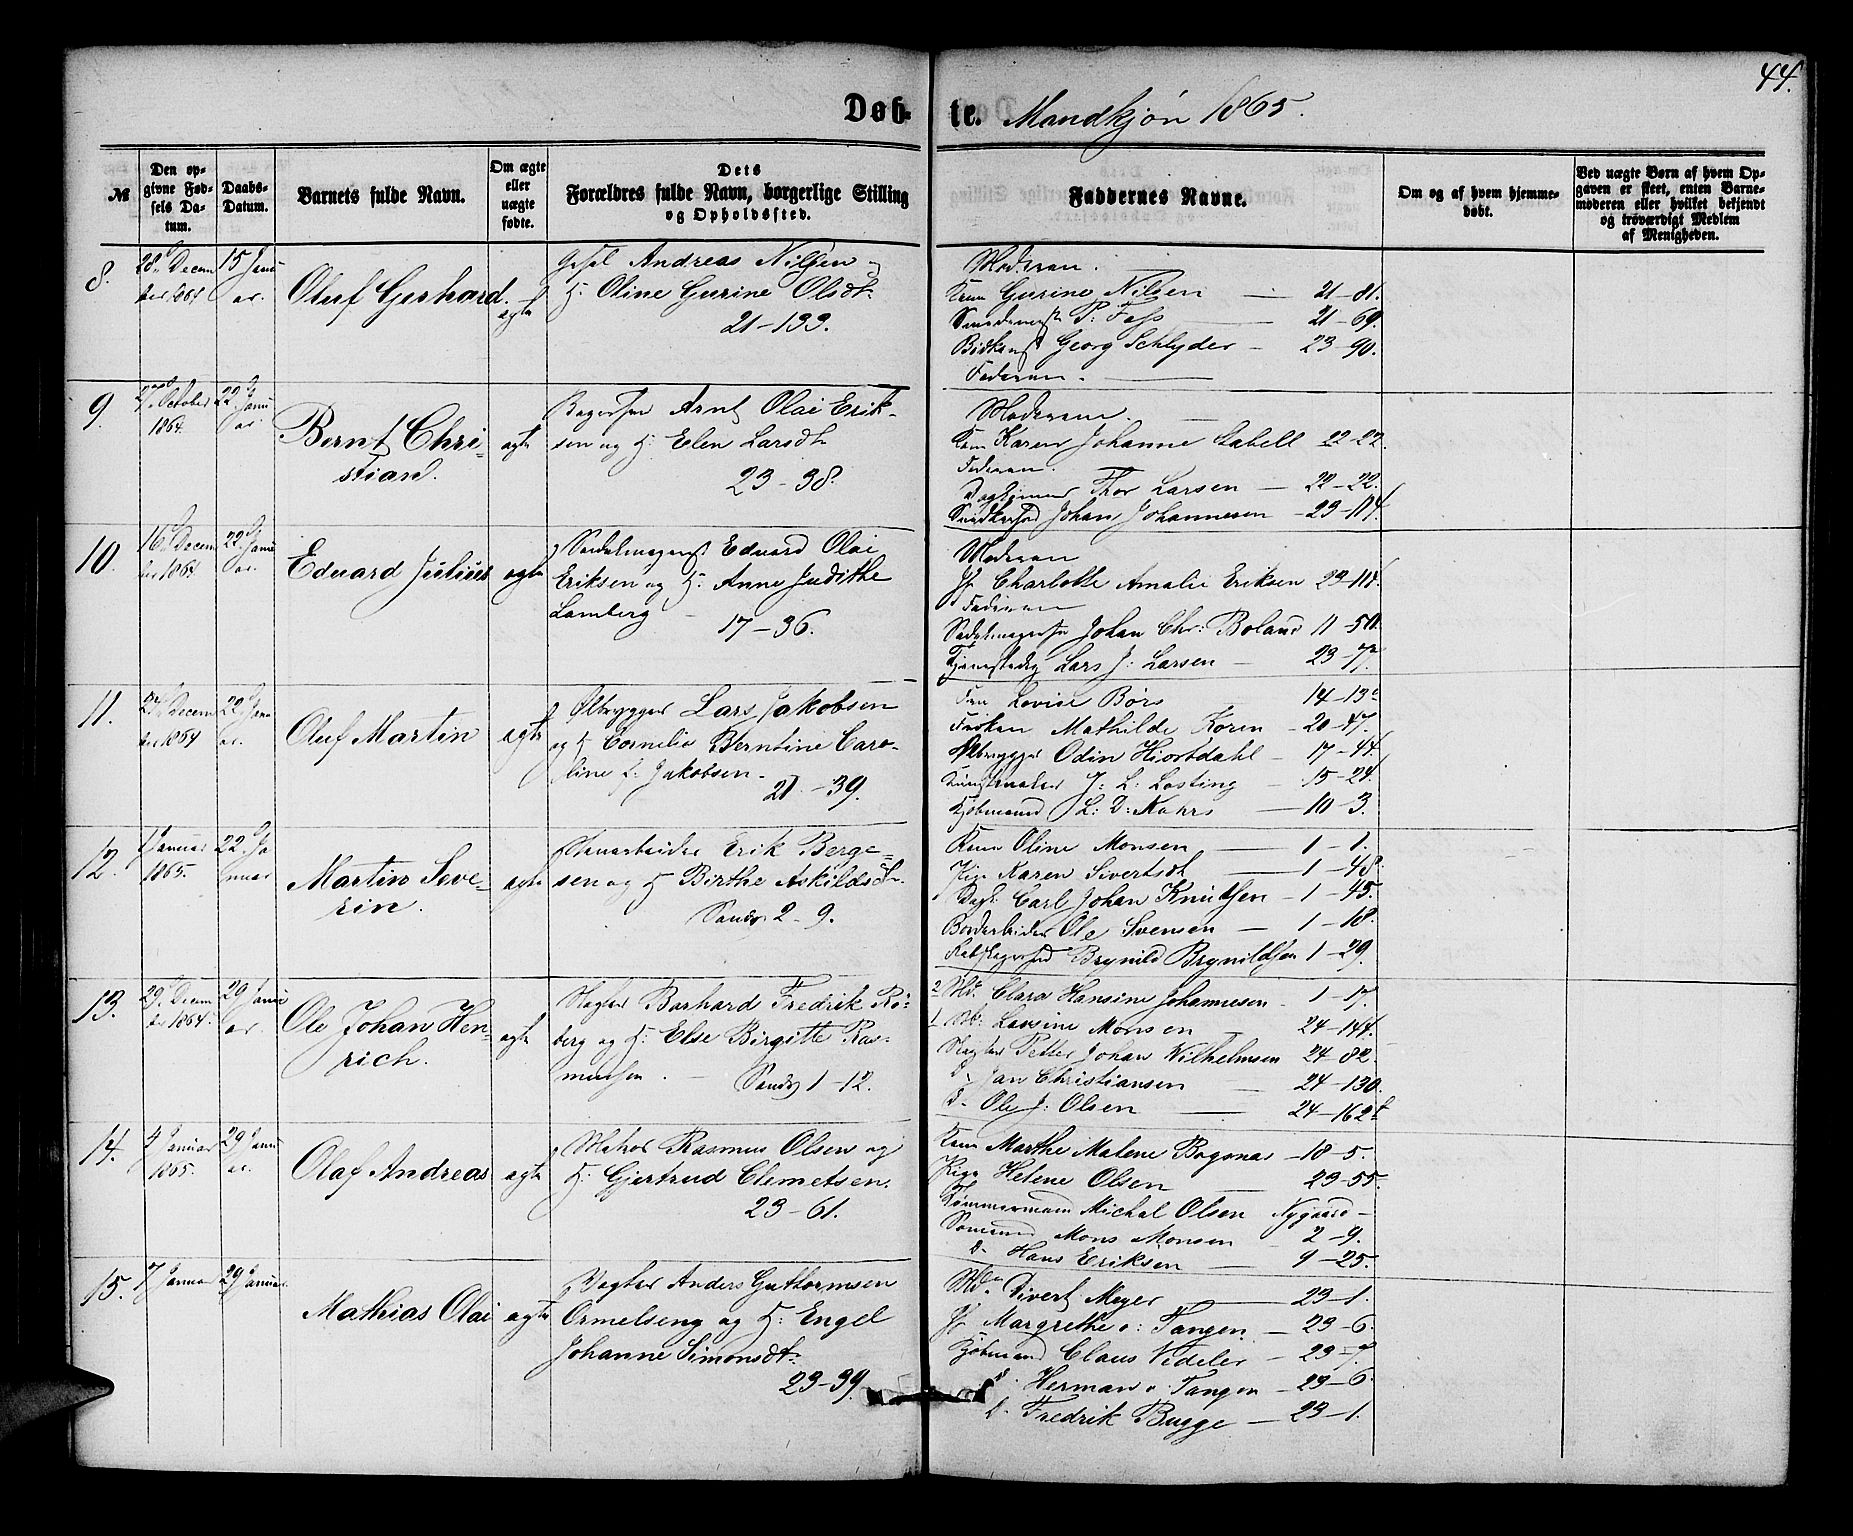 44.
Døb- te. Mandkjön 1865.
№
Den op-
givne Fød-
sels Da-
tum.
Daabs-
Datum.
Barnets fulde Navn.
Om ægte
eller
uægte
fødte.
Dets
Forældres fulde Navn, borgerlige Stilling
og Opholdssted.
Faddernes Navne.
Om og af hvem hjemme-
døbt.
Ved uægte Børn af hvem Op-
gaven er skeet, enten Barne-
moderen eller hvilket bekjendt
og troværdigt Medlem
af Menigheden.
8.
28 Decem
ber 1864
15 Janu
ar.
Oluf Gerhard.
ægte
Andreas Nilsen og
H: Oline Gurine Olsdt:
21-133.
Moderen.
Kone Gurine Nilsen 21-81.
P: Foss 21-69.
Georg Schlyder 23-90.
Faderen.
9.
27 October
1864.
22 Janu
ar.
Bernt Chri-
stian.
ægte
Arnt Olai Erik-
sen og H: Elen Larsdt
23-38.
Moderen.
Kone Karen Johanne Label 22-22.
Faderen.
Thor Larsen 22-22.
Johan Johannesen 23-114.
10.
16 Decem
ber 1864
22 Janu
ar.
Eduard Julius
ægte
Eduard Olai
Eriksen og H: Anne Judithe
Lamberg
17-36.
Moderen
Jf Charlotte Amalie Eriksen 23-114.
Faderen
Johan Chr: Boland 11-50.
Lars J: Larsen 23-7
11.
Decem
ber 1864
22 Janu
ar.
Oluf Martin
ægte
Ølbrygger Lars Jakobsen
og H Cornelia Berntine Caro-
line f. Jakobsen.
21-39.
Fru Lovise Børs 14-13
Frøken Mathilde Koren 20-47.
Ølbrygger Odin Hiortdahl 17-44.
Kunstmaler J: L: Losting 15-24.
Kjøbmand L: D: Kahrs 10-3.
12.
Januar
1865.
22 Ja
nuar
Martin Seve-
rin.
ægte
Erik Berge-
sen og H Birthe Askildsdt.
Sandv 2-9.
Kone Oline Monsen 1-1.
Pige Karen Sivertsdt 1-48.
Carl Johan Knutsen 1-45.
Ole Svensen 1-18.
Brynild Brynildsen 1-29.
13.
29 Decem
ber 1864.
29 Janu
ar.
Ole Johan Hen-
rich.
ægte
Barhard Fredrik Rö-
berg og H: Else Birgitte Ras-
mussen.
Sandv 1-12.
2 Clara Hansine Johannesen 1-17.
1 Lovsine Monsen 24-144.
Petter Johan Wilhelmsen 24-82.
D Jan Christiansen 24-130.
D Ole J: Olsen 24-162
14.
4 Januar
1865.
29 Janu
ar.
Olaf Andreas
ægte
Rasmus Olsen og
H: Gjertrud Clemetsen.
23-61.
Kone Marthe Malene Bogonas 18-5.
Pige Helene Olsen 23-55.
Tømmermand Michal Olsen Nygaard
Mons Monsen 2-9.
D Hans Eriksen 9-25.
15.
7 Januar
29 Januar.
Mathias Olai
ægte
Anders Guttormsen
Ormelseng og H: Engel
Johanne Simonsdt:
23-39.
Sivert Meyer 23-1.
Jf Margrethe v: Tangen 23-6.
Kjøbmand Claus Videler 23-7.
d. Herman v. Tangen 23-6.
d. Fredrik Bugge 23-1.